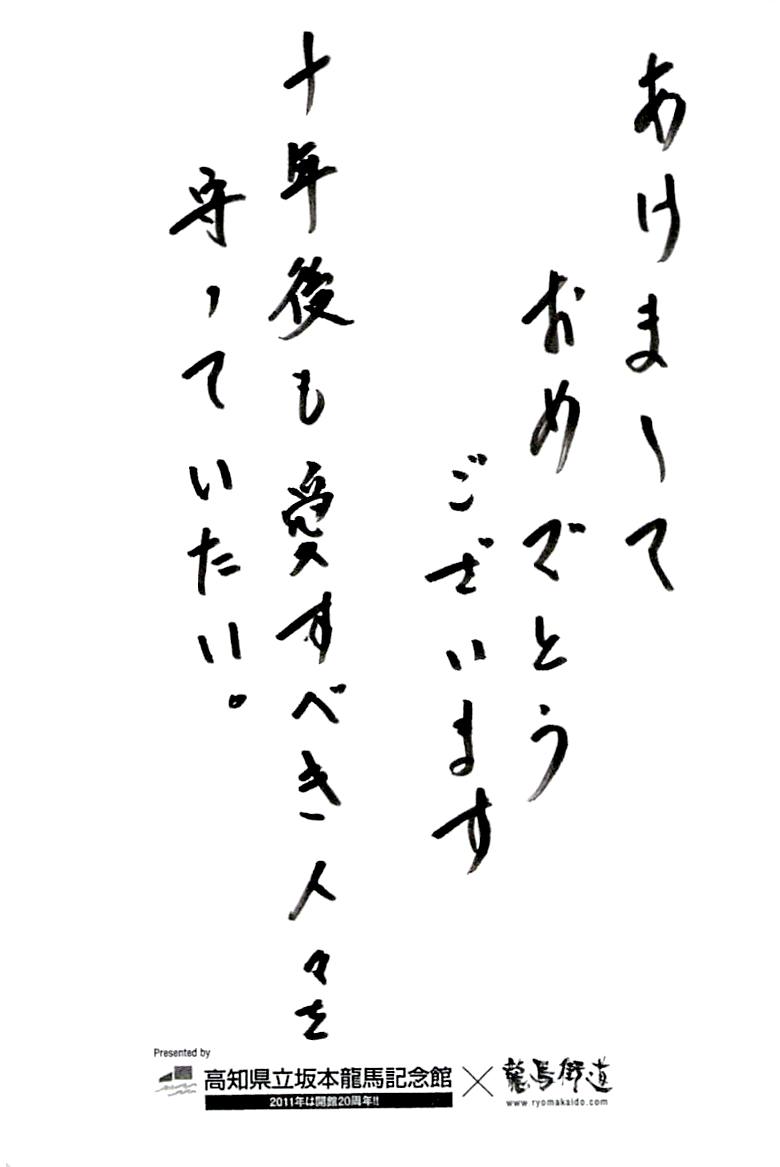 あけまして
おめでとう
ございます
十年後も愛すべき人々を
守っていたい。
Presented by
高知県立坂本龍馬記念館
2011年は開館20周年!!
×
龍馬街道
www.ryomakaido.com